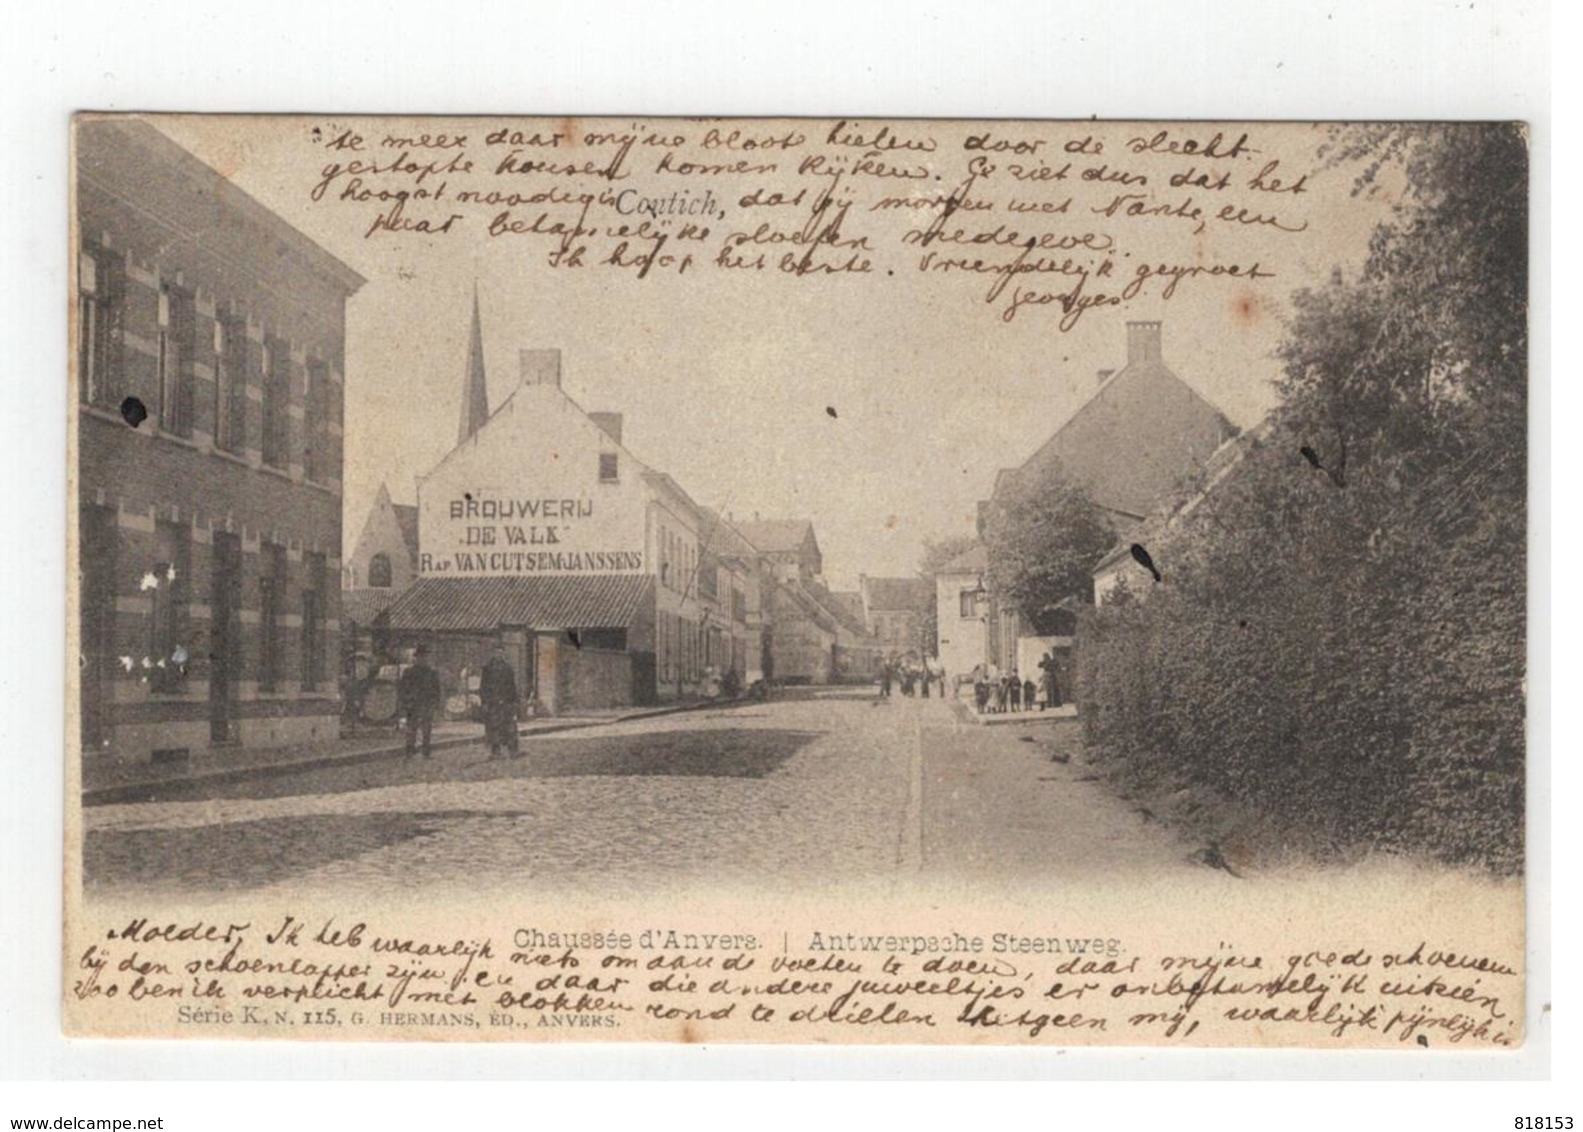 te meer daar mijne bloote hielen door de slecht
gestopte kousen komen kijken. Ge ziet dus dat het
hoogst noodig is, dat gij morgen met Nante, een
Contich,
paar betamelijke sloefen medegeve.
Ik hoop het beste. Vriendelijk gegroet
Georges.
BROUWERIJ
„DE VALK"
RAP. VAN CUTSEM-JANSSENS
Moeder, Ik heb waarlijk niets om aan de voeten te doen, daar mijne goede schoenen
Chaussée d'Anvers. | Antwerpsche Steenweg.
bij den schoenlapper zijn en daar die andere juweeltjes er onbetamelijk uitzien
zoo ben ik verplicht met blokken rond te drielen hetgeen mij, waarlijk pijnlijk is
Série K, N. 115, G. HERMANS, ÉD., ANVERS.
www.delcampe.net
essevee
818153